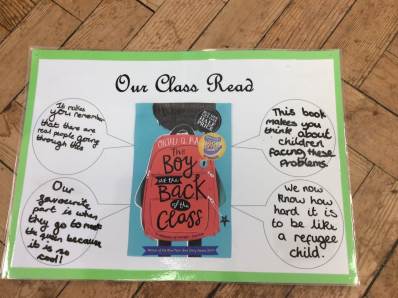 Our Class Read
It makes
you remember
that there are
real people going
through this
This book
makes you
think about
children
facing these
problems.
ONJALI Q. RAÚF
The
Boy
at the
Back
of the
Class
Our
favourite
part is when
they go to meet
the queen because
it is so
cool!
We now
know how
hard it is
to be like
a refugee
child.